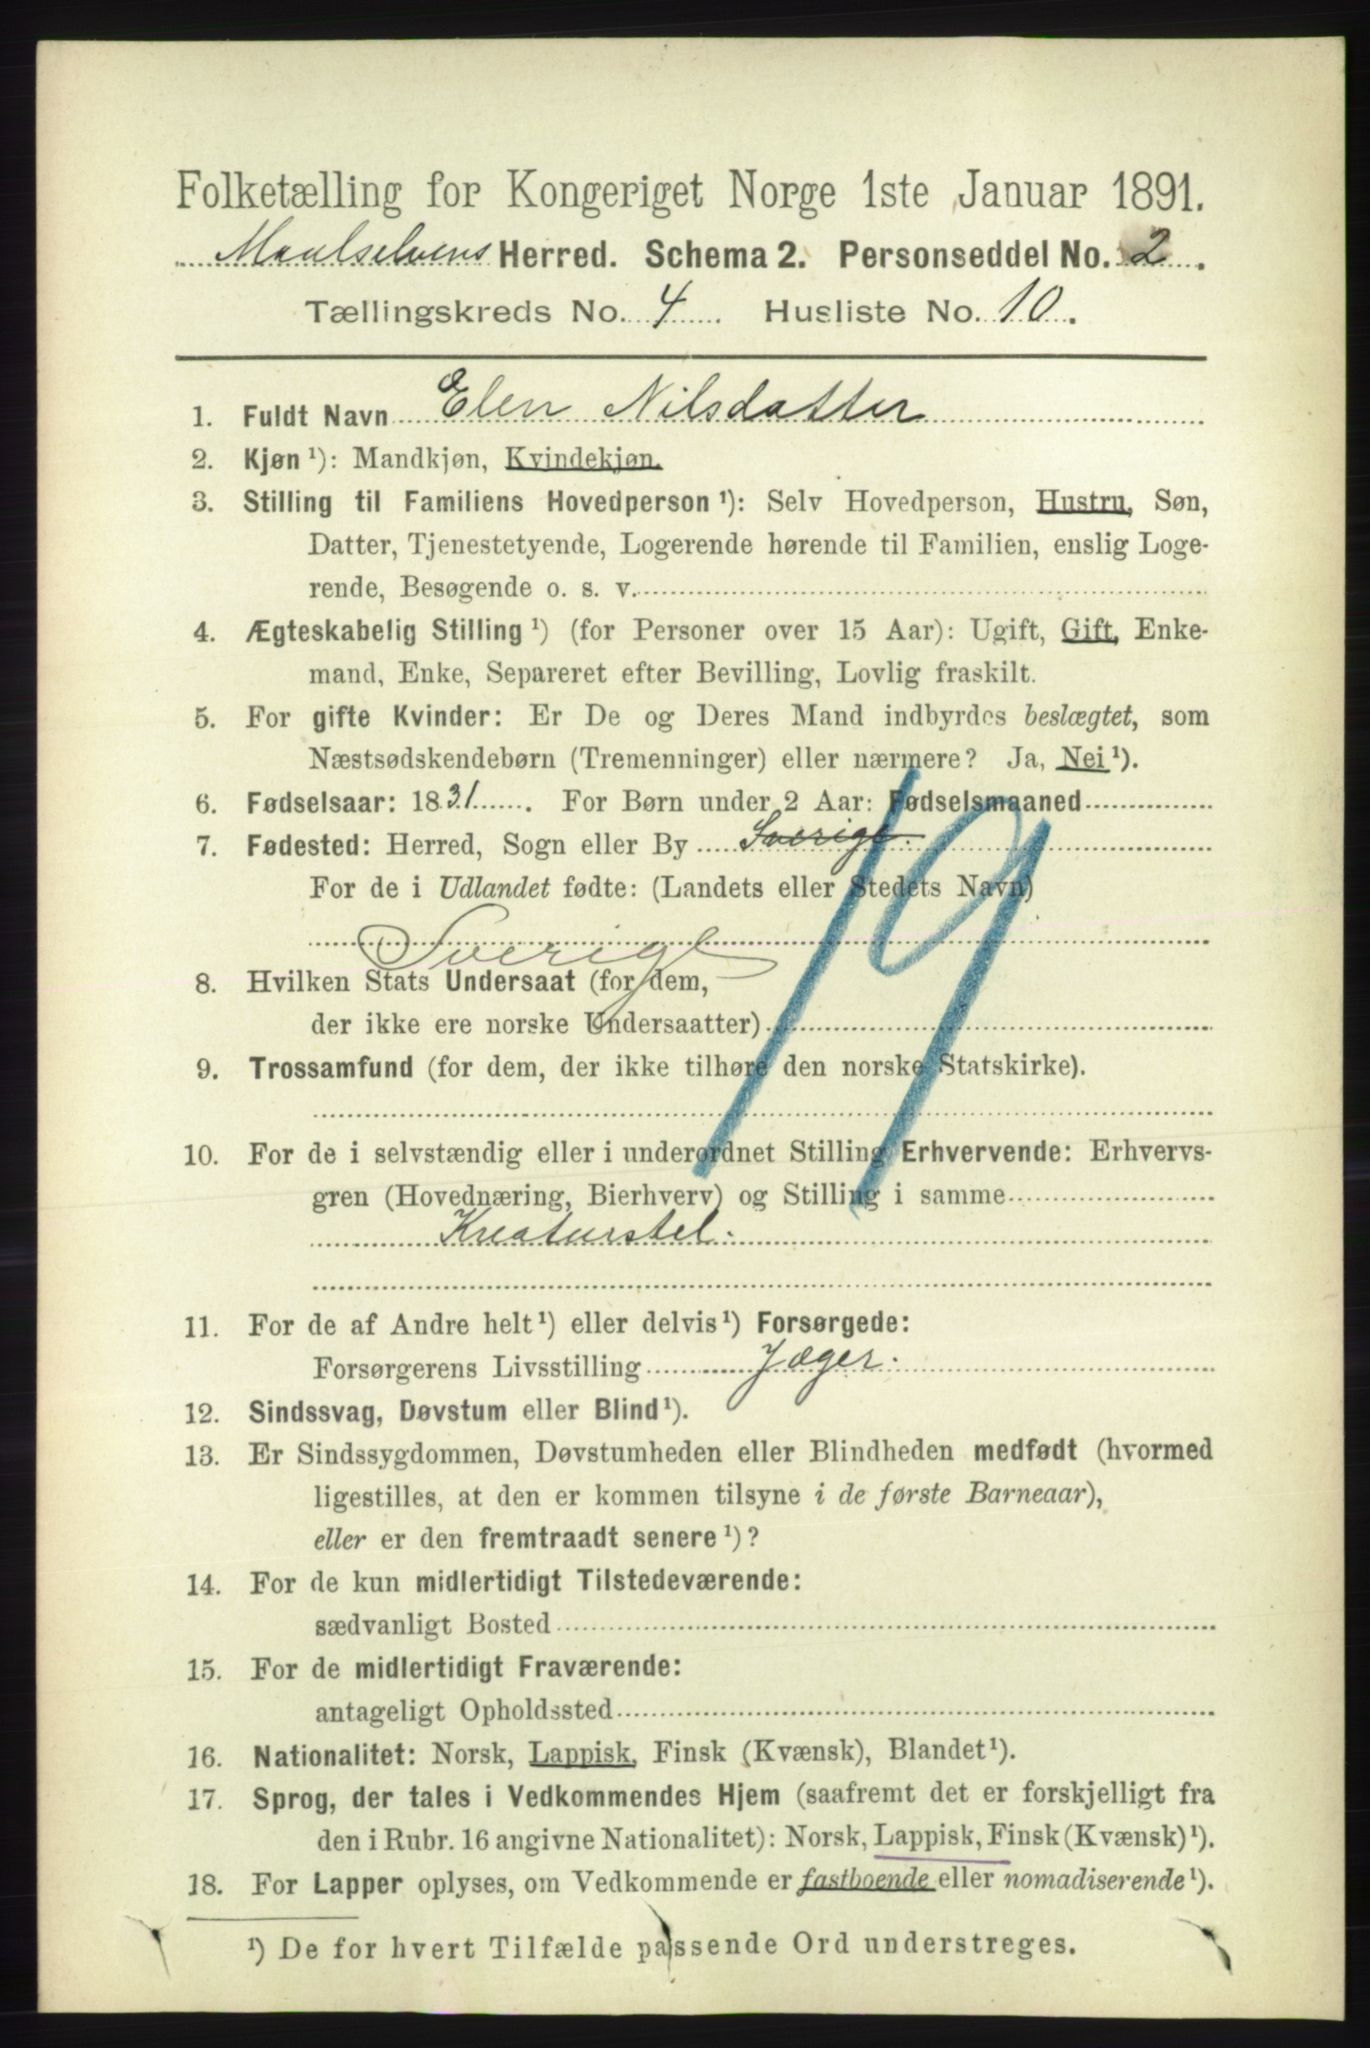 Folketælling for Kongeriget Norge 1ste Januar 1891.
Maalselvens Herred. Schema 2. Personseddel No. 2.
Tællingskreds No. 4. Husliste No. 10.
1. Fuldt Navn Elen Nilsdatter
2. Kjøn ¹): Mandkjøn, Kvindekjøn.
3. Stilling til Familiens Hovedperson ¹): Selv Hovedperson, Hustru, Søn,
Datter, Tjenestetyende, Logerende hørende til Familien, enslig Loge-
rende, Besøgende o. s. v.
4. Ægteskabelig Stilling ¹) (for Personer over 15 Aar): Ugift, Gift, Enke-
mand, Enke, Separeret efter Bevilling, Lovlig fraskilt.
5. For gifte Kvinder: Er De og Deres Mand indbyrdes beslægtet, som
Næstsødskendebørn (Tremenninger) eller nærmere? Ja, Nei ¹).
6. Fødselsaar: 1831. For Børn under 2 Aar: Fødselsmaaned
7. Fødested: Herred, Sogn eller By Sverige.
For de i Udlandet fødte: (Landets eller Stedets Navn)
Sverige
19
8. Hvilken Stats Undersaat (for dem,
der ikke ere norske Undersaatter)
9. Trossamfund (for dem, der ikke tilhøre den norske Statskirke).
10. For de i selvstændig eller i underordnet Stilling Erhvervende: Erhvervs-
gren (Hovednæring, Bierhverv) og Stilling i samme
Kreaturstel.
11. For de af Andre helt ¹) eller delvis ¹) Forsørgede:
Forsørgerens Livsstilling Jæger.
12. Sindssvag, Døvstum eller Blind ¹).
13. Er Sindssygdommen, Døvstumheden eller Blindheden medfødt (hvormed
ligestilles, at den er kommen tilsyne i de første Barneaar),
eller er den fremtraadt senere ¹)?
14. For de kun midlertidigt Tilstedeværende:
sædvanligt Bosted
15. For de midlertidigt Fraværende:
antageligt Opholdssted
16. Nationalitet: Norsk, Lappisk, Finsk (Kvænsk), Blandet ¹).
17. Sprog, der tales i Vedkommendes Hjem (saafremt det er forskjelligt fra
den i Rubr. 16 angivne Nationalitet): Norsk, Lappisk, Finsk (Kvænsk) ¹).
18. For Lapper oplyses, om Vedkommende er fastboende eller nomadiserende ¹).
¹) De for hvert Tilfælde passende Ord understreges.